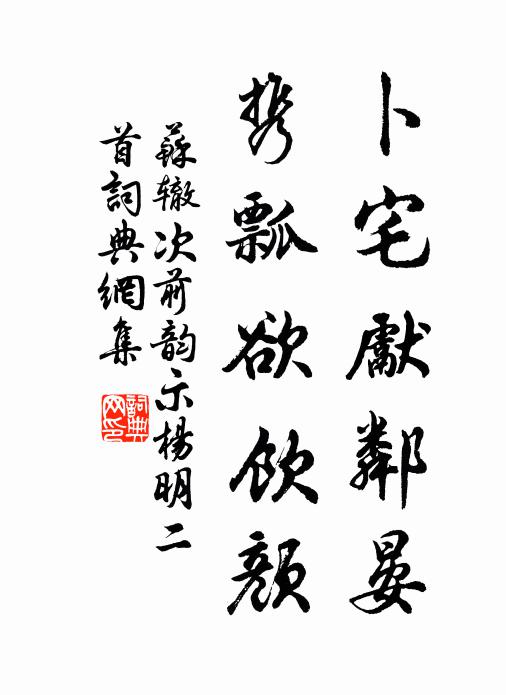 卜宅獻鄰晏
携瓢欲飲顏
蘇辙次前韵示楊明二
首詞典網集
詞典
网印